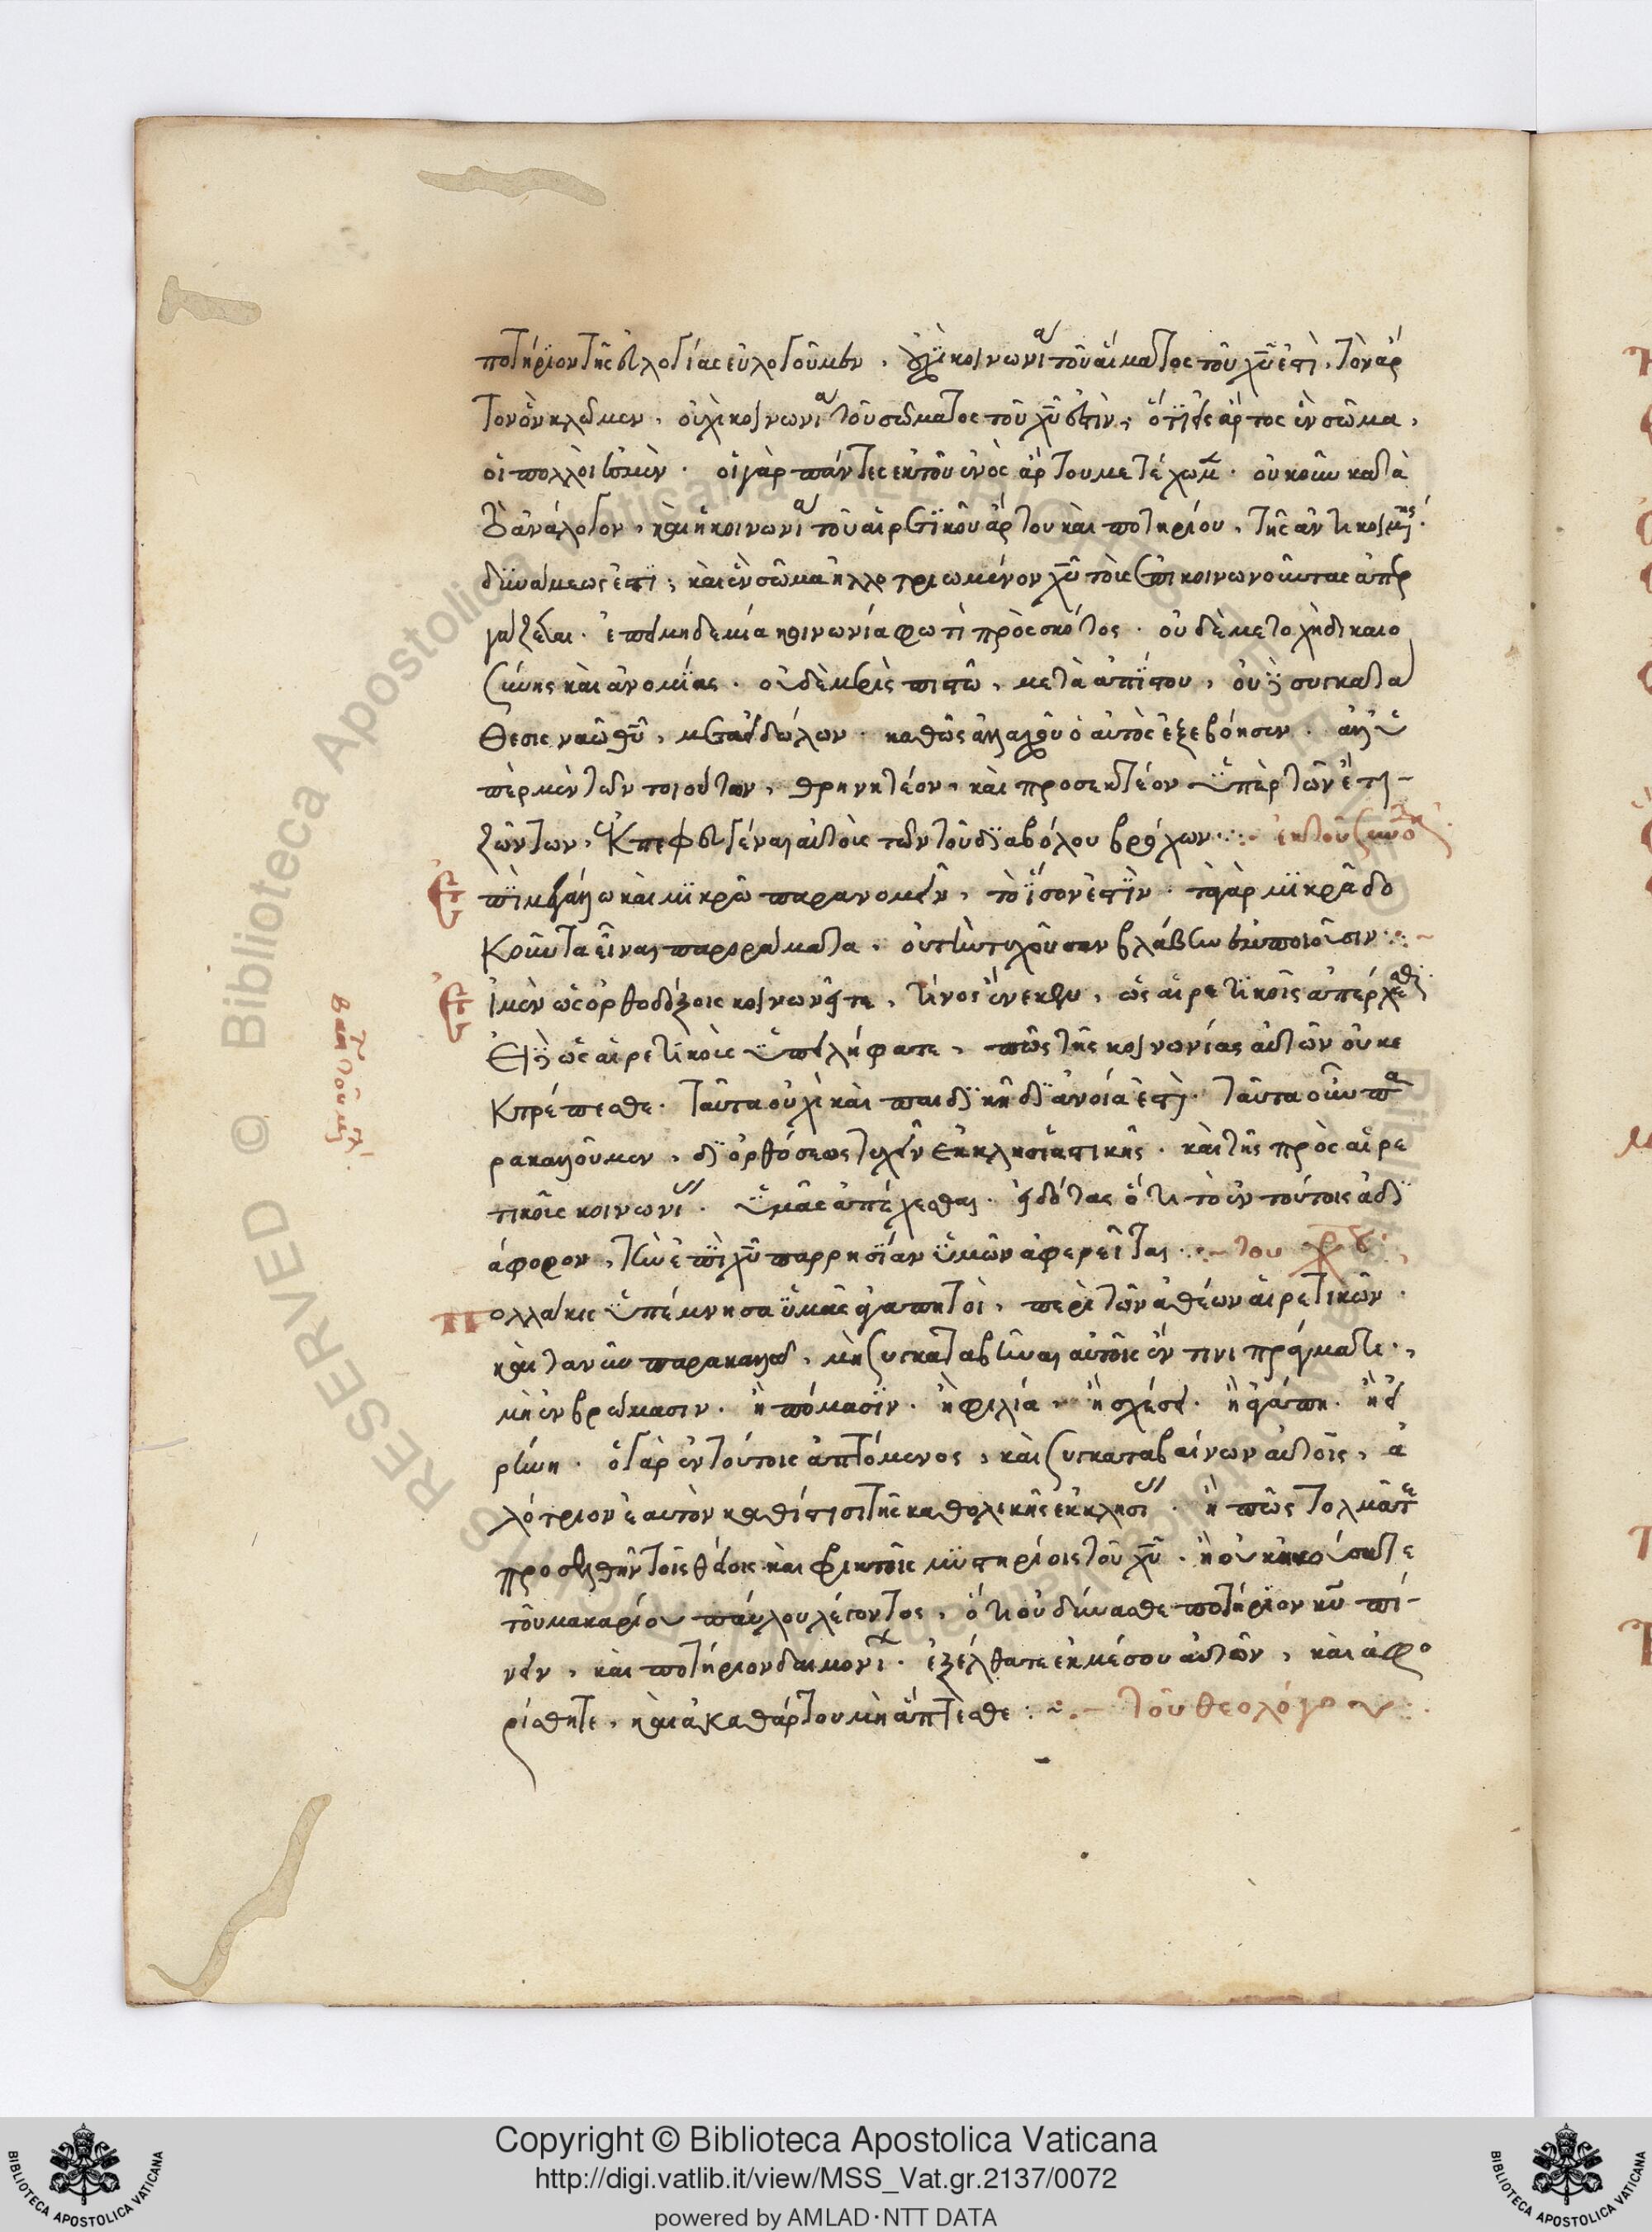 ποτήριον τῆς εὐλογίας εὐλογοῦμεν, οὐχὶ κοινωνία τοῦ αἵματος τοῦ χυ ἐστὶ, τὸν ἄρ
τον ὃν κλῶμεν, οὐχὶ κοινωνία τοῦ σώματος τοῦ χυ ἐστὶν, ὅτι εἷς ἄρτος ἓν σῶμα,
οἱ πολλοὶ ἐσμὲν. οἱ γὰρ πάντες ἐκ τοῦ ἑνὸς ἄρτου μετέχωμεν. οὐκοῦν κατὰ
τὸ ἀνάλογον, καὶ ἡ κοινωνία τοῦ αἱρετικοῦ ἄρτου καὶ ποτηρίου, τῆς ἀντικειμένης
δυνάμεως ἐστὶ, καὶ ἓν σῶμα ἠλλοτριωμένον χυ τοὺς ἐπικοινωνοῦντας ἀπερ
γάζεται. ἐπεὶ μηδεμία κοινωνία φωτὶ πρὸς σκότος. οὐδὲ μετοχὴ δικαιο
σύνης καὶ ἀνομίας. οὐδὲ μερὶς πιστῶ, μετὰ ἀπίστου, οὐδὲ συγκατα
θεσις ναῶ θυ, μετὰ εἰδώλων. καθὼς ἀλλαχοῦ ὁ αὐτὸς ἐξεβόησεν. ἀλλ' ὑ
πὲρ μὲν τῶν τοιούτων, θρηνητέον, καὶ προσεκτέον ὑπὲρ τῶν ἔτι
ζώντων, ἐκπεφευγέναι αὐτοὺς τῶν τοῦ διαβόλου βρόχων· ἐκ τοῦ
ἐπὶ μεγάλω καὶ μικρῶ παρανομεῖν, τὸ ἴσον ἐστὶν. τὰ γὰρ μικρὰ δο
κοῦντα εἶναι παροράματα, οὐ τὴν τυχοῦσαν βλάβην ἐμποιοῦσιν·
εἰ μὲν ὡς ὀρθοδόξοις κοινωνεῖτε, τίνος ἕνεκεν, ὡς αἱρετικοῖς ἀπέρχεσθε
εἰ δὲ ὡς αἱρετικοὺς ὑπειλήφατε, πῶς τῆς κοινωνίας αὐτῶν οὐκ ε
κτρέπεσθε. ταῦτα οὐχὶ καὶ παιδικῆ διανοία ἐστὶ. ταῦτα οὖν πα
ρακαλοῦμεν, διορθώσεως τυχεῖν ἐκκλησιαστικῆς. καὶ τῆς πρὸς αἱρε
τικοὺς κοινωνίας. ὑμᾶς ἀπέχεσθαι. εἰδότας ὅτι τὸ ἐν τούτοις ἀδι
άφορον, τὴν ἐπὶ χυ παρρησίαν ὑμῶν ἀφερεῖται· του χρυ
πολλάκις ὑπέμνησα ὑμᾶς ἀγαπητοὶ, περὶ τῶν ἀθέων αἱρετικῶν.
καὶ τανῦν παρακαλῶ, μὴ συγκαταβῆναι αὐτοῖς ἔν τινι πράγματι,
μὴ ἐν βρώμασιν. ἢ πόμασιν. ἢ φιλία, ἢ σχέσει. ἢ ἀγάπη. ἢ εἰ
ρήνη. ὁ γὰρ ἐν τούτοις ἁπτόμενος, καὶ συγκαταβαίνων αὐτοῖς, ἀ
λότριον ἑαυτὸν καθίστησι τῆς καθολικῆς ἐκκλησίας. ἢ πῶς τολμᾶτε
προσελθεῖν τοῖς θείοις καὶ φρικτοῖς μυστηρίοις τοῦ χυ. ἢ οὐκ ἠκούσατε
τοῦ μακαρίου παύλου λέγοντος, ὅτι οὐ δύνασθε ποτήριον κυ πί
νειν, καὶ ποτήριον δαιμονίων. ἐξέλθατε ἐκ μέσου αὐτῶν, καὶ ἀφο
ρίσθητε, καὶ ἀκαθάρτου μὴ ἅπτεσθε· τοῦ θεολόγου
© Biblioteca Apostolica Vaticana ALL RIGHTS RESERVED
Copyright © Biblioteca Apostolica Vaticana
http://digi.vatlib.it/view/MSS_Vat.gr.2137/0072
powered by AMLAD·NTT DATA
BIBLIOTECA APOSTOLICA VATICANA
BIBLIOTECA APOSTOLICA VATICANA